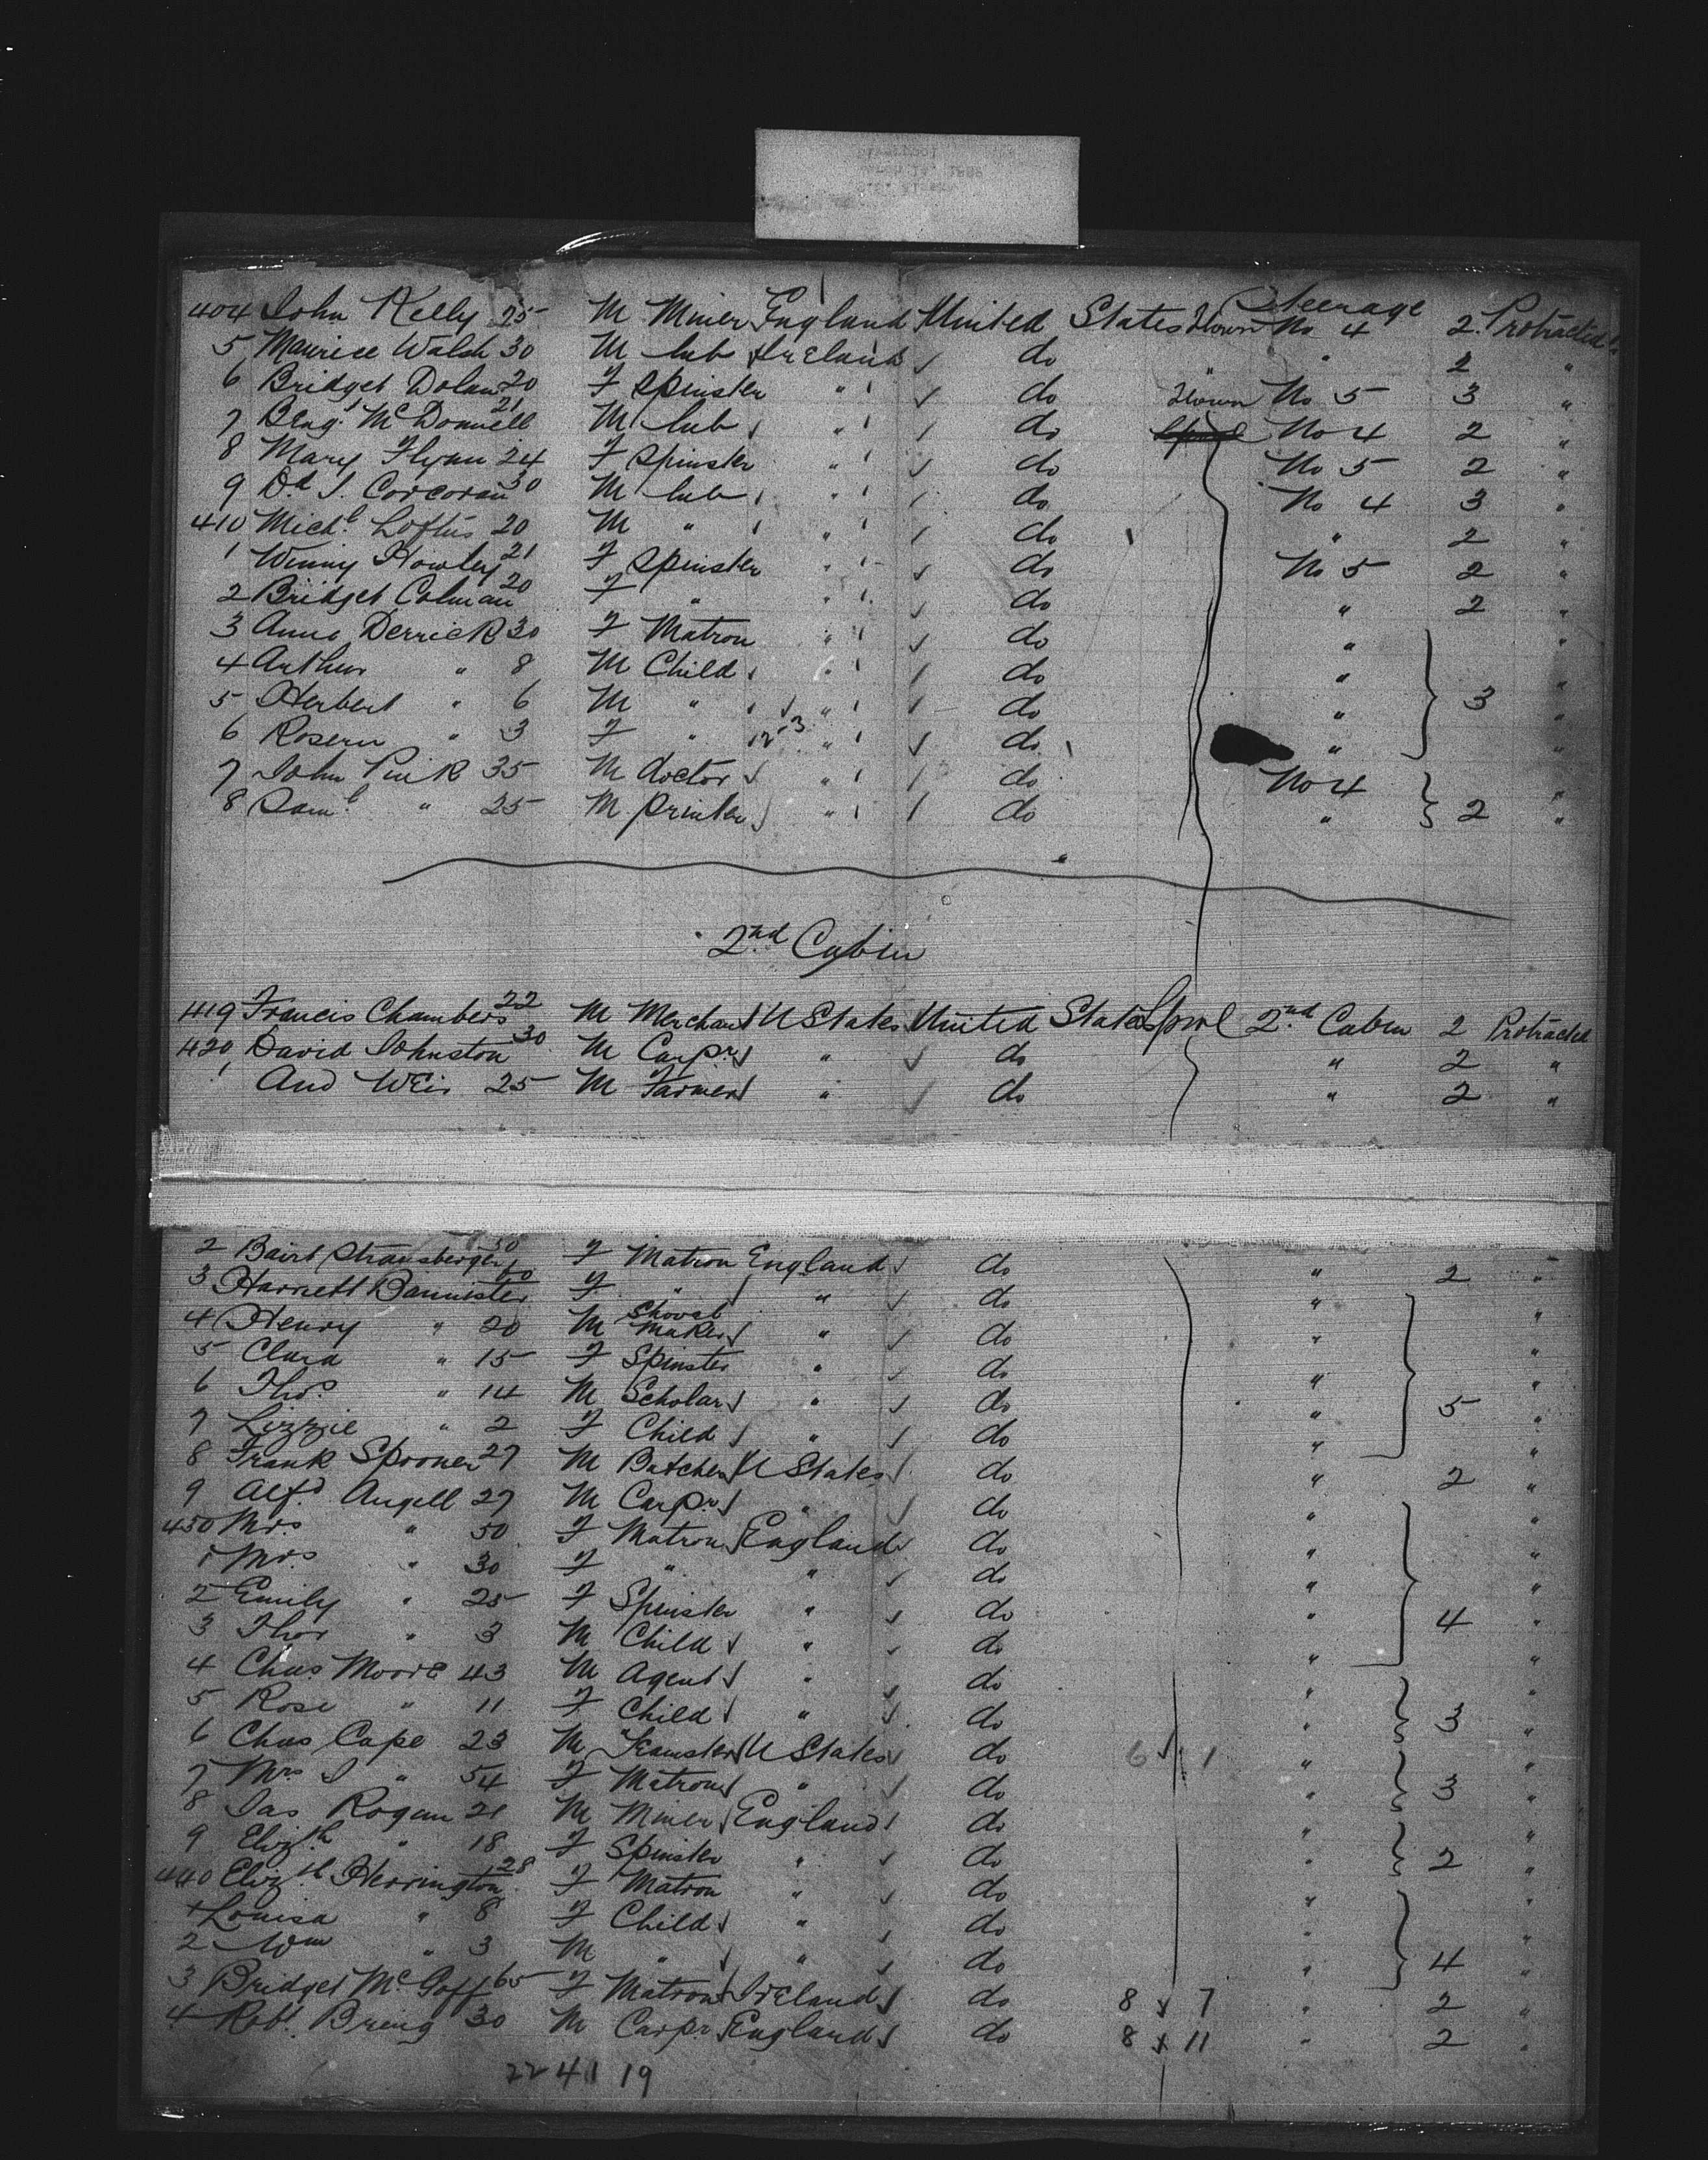 Steerage
404 John Kelly 25 M Miner England United States Down No 4 2 Protracted
5 Maurice Walsh 30 M lab Ireland do " " 2 "
6 Bridget Dolan 20 F Spinster " do Down No 5 3 "
7 Benj. McDonnell 21 M lab " do No 4 2 "
8 Mary Flynn 24 F Spinster " do No 5 2 "
9 Dd J. Corcoran 30 M lab " do No 4 3 "
410 Michl Loftus 20 M " " do " 2 "
1 Winny Howley 21 F Spinster " do No 5 2 "
2 Bridget Colman 20 F " " do " 2 "
3 Anna Derrick 30 F Matron " do " "
4 Arthur " 8 M Child " do " "
5 Herbert " 6 M " " do " 3 "
6 " 3 F " " do " "
7 John Pink 35 M doctor " do No 4 "
8 Saml " 25 M printer " do " 2 "
2nd Cabin
419 Francis Chambers 22 M Merchant U States United States 2nd Cabin 2 Protracted
420 David Johnston 30 M Carpr " do " 2 "
1 And Weir 25 M Farmer " do " 2 "
2 Strausberger 50 F Matron England do " 2 "
3 Harriett Bannister 60 F " " do " "
4 Henry " 20 M Shovel Maker " do " "
5 Clara " 15 F Spinster " do " "
6 Thos " 14 M Scholar " do " 5 "
7 Lizzie " 2 F Child " do " "
8 Frank Sprower 27 M Butcher U States do " 2 "
9 Alfd Angell 27 M Carpr " do " "
430 Mrs " 50 F Matron England do " "
1 Mrs " 30 F " " do " "
2 Emily " 25 F Spinster " do " 4 "
3 Thos " 3 M Child " do " "
4 Chas Moore 43 M Agent " do " "
5 Rose " 11 F Child " do " 3 "
6 Chas Cape 23 M Teamster U States do 6 1 " "
7 Mrs J " 54 F Matron " do " 3 "
8 Jas Rogan 21 M Miner England do " "
9 Elizth " 18 F Spinster " do " 2 "
440 Elizth Herrington 28 F Matron " do " "
1 Louisa " 8 F Child " do " "
2 Wm " 3 M " " do " 4 "
3 Bridget McGoff 65 F Matron Ireland do 8 x 7 " 2 "
4 Robt Breing 30 M Carpr England do 8 x 11 " 2 "
22 41 19